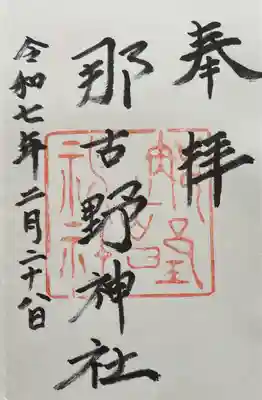 奉拝
那古野神社
令和七年二月二十八日